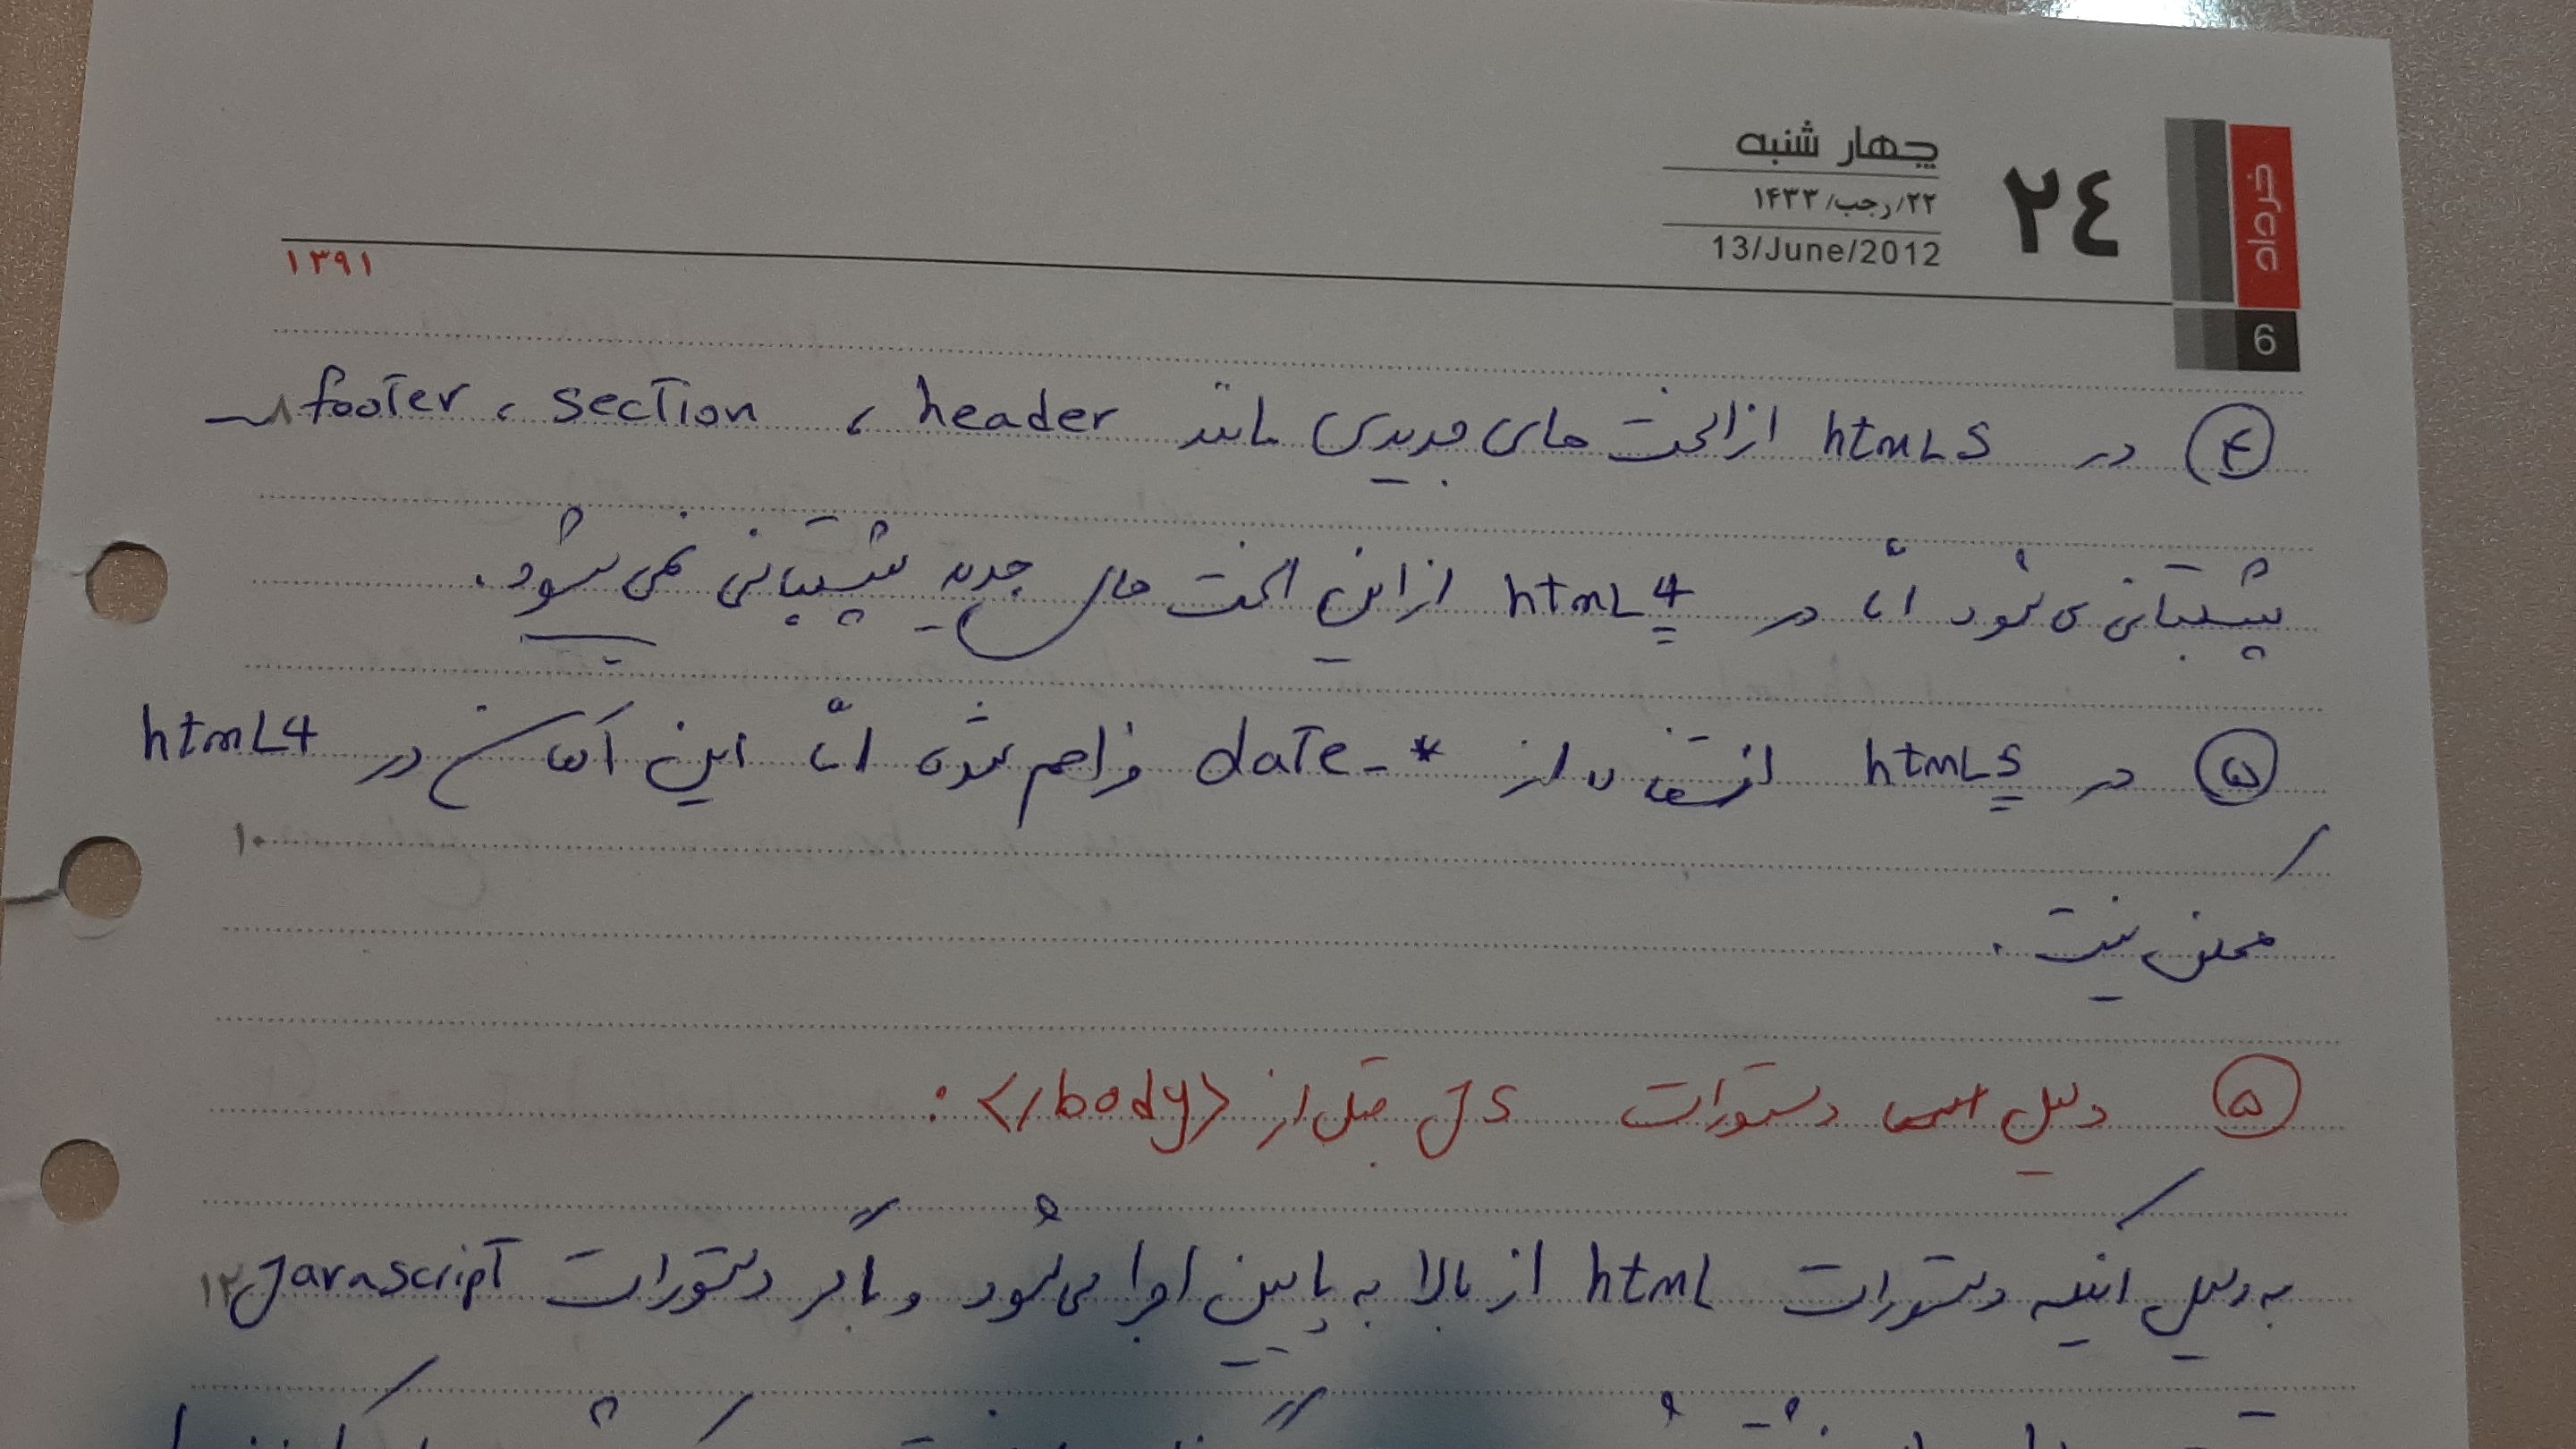 چهار شنبه
۲۴
خرداد
۲۲/رجب/۱۴۳۳
13/June/2012
۱۳۹۱
6
۴ در html5 از المنت های جدیدی مانند header ، section ، footer
پشتیبانی می شود امّا در html4 از این المنت های جدید پشتیبانی نمی شود.
۵ در html5 از data-* فراهم شده امّا این امکان در html4
۱۰
ممکن نیست.
۵ دلیل دستورات JS قبل از </body> :
به دلیل اینکه دستورات html از بالا به پایین اجرا می شود و اگر دستورات Javascript
۱۲